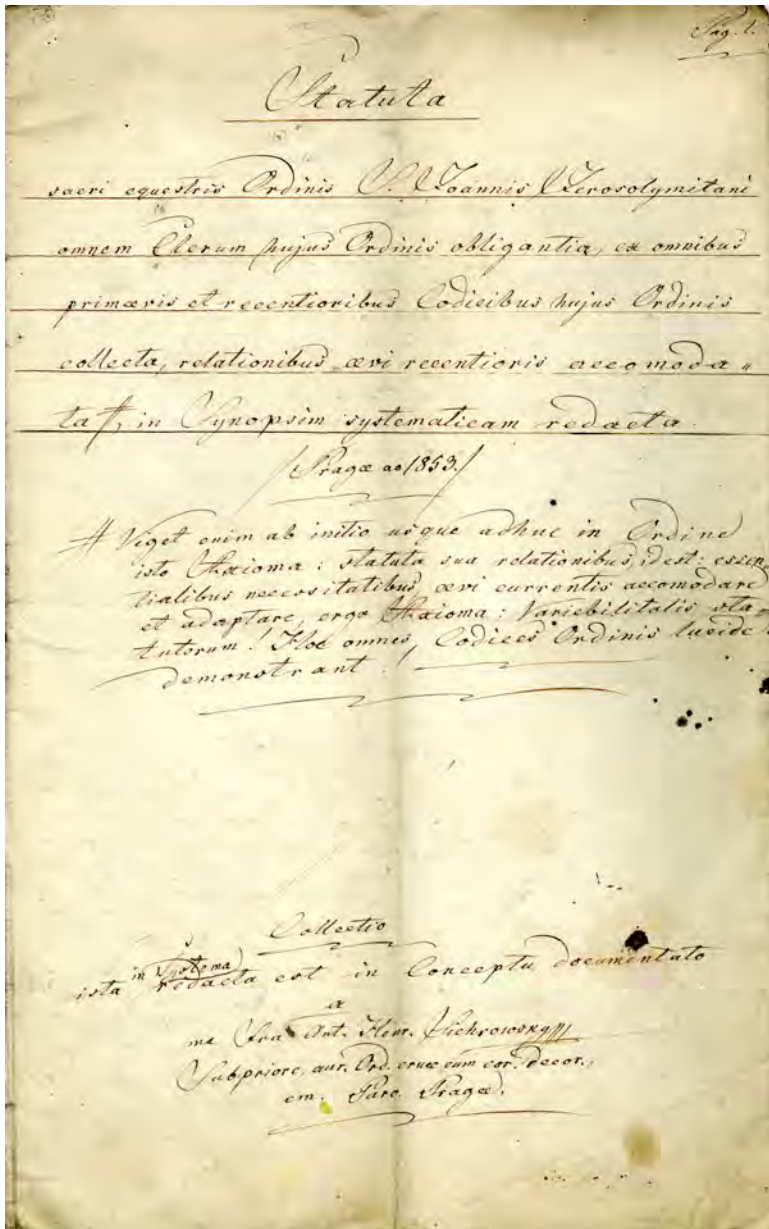 Pag. 1.
Statuta
sacri equestris Ordinis S. Joannis Jerosolymitani
omnem Clerum hujus Ordinis obligantia, ex omnibus
primævis et recentioribus Codicibus hujus Ordinis
collecta, relationibus ævi recentioris accomoda "
ta #, in Synopsim systematicam redacta.
/ Pragæ ao 1853. /
# Viget enim ab initio usque adhuc in Ordine
isto Axioma: statuta sua relationibus, id est: essen,
tialibus necessitatibus, ævi currentis accomodare
et adaptare, ergo Axioma: Variebilitatis sta=
tutorum! Hoc omnes, Codices Ordinis lucide
demonstrant!
Collectio
in Systema
ista redacta est in Conceptu documentato
a
me Fra Ant. Henr.
Subpriore, aur. Ord. cruce cum cor. decor.,
em. Paro. Pragæ.